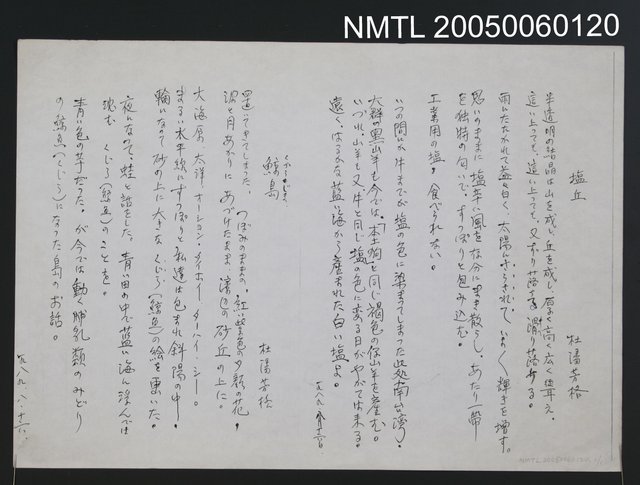 NMTL 20050060120
塩丘
杜潘芳格
半透明の結晶は山を成し丘を成し、厚く高く広く聳え、
這い上っても、這い上っても、又ずり落ち、滑り落ちる。
雨にたたかれて益々白く、太陽にさらされて、いよいよ輝きを増す。
思いのままに塩辛い風を存分にまき散らし、あたり一帯
を独特の匂いで、すっぽりと包み込む。
工業用の塩。食べられない。
いつの間にか牛までが塩の色に染まってしまった此処南台湾。
大群の黒山羊も今では、「本土狗」と同じ褐色の仔山羊を産む。
いづれ山羊も又牛と同じ塩の色に変る日がやがては来る。
遠く、はるかな藍い海から産まれた白い塩よ。
一九八九、八月十六日
鯨島
杜潘芳格
置いてきてしまった。つぼみのままの、紅紫色の夕顔の花。
涙と月あかりに あづけたまま、濱辺の砂丘の上に。
大海原、太洋 オーション・タイホイ ターハイ・シー。
まるい水平線にすっぽりと私達は包まれ斜陽の中、
輪になって砂の上に大きなくじら(鯨魚)の絵を画いた。
夜になって、蛙と話をした。青い田の中で藍い海に浮んでは
沈む くじら(鯨魚)のことを。
青い色の芋だった。が今では動く哺乳類のみどり
の鯨魚(くじら)になった島のお話。
一九八九、八、十六、